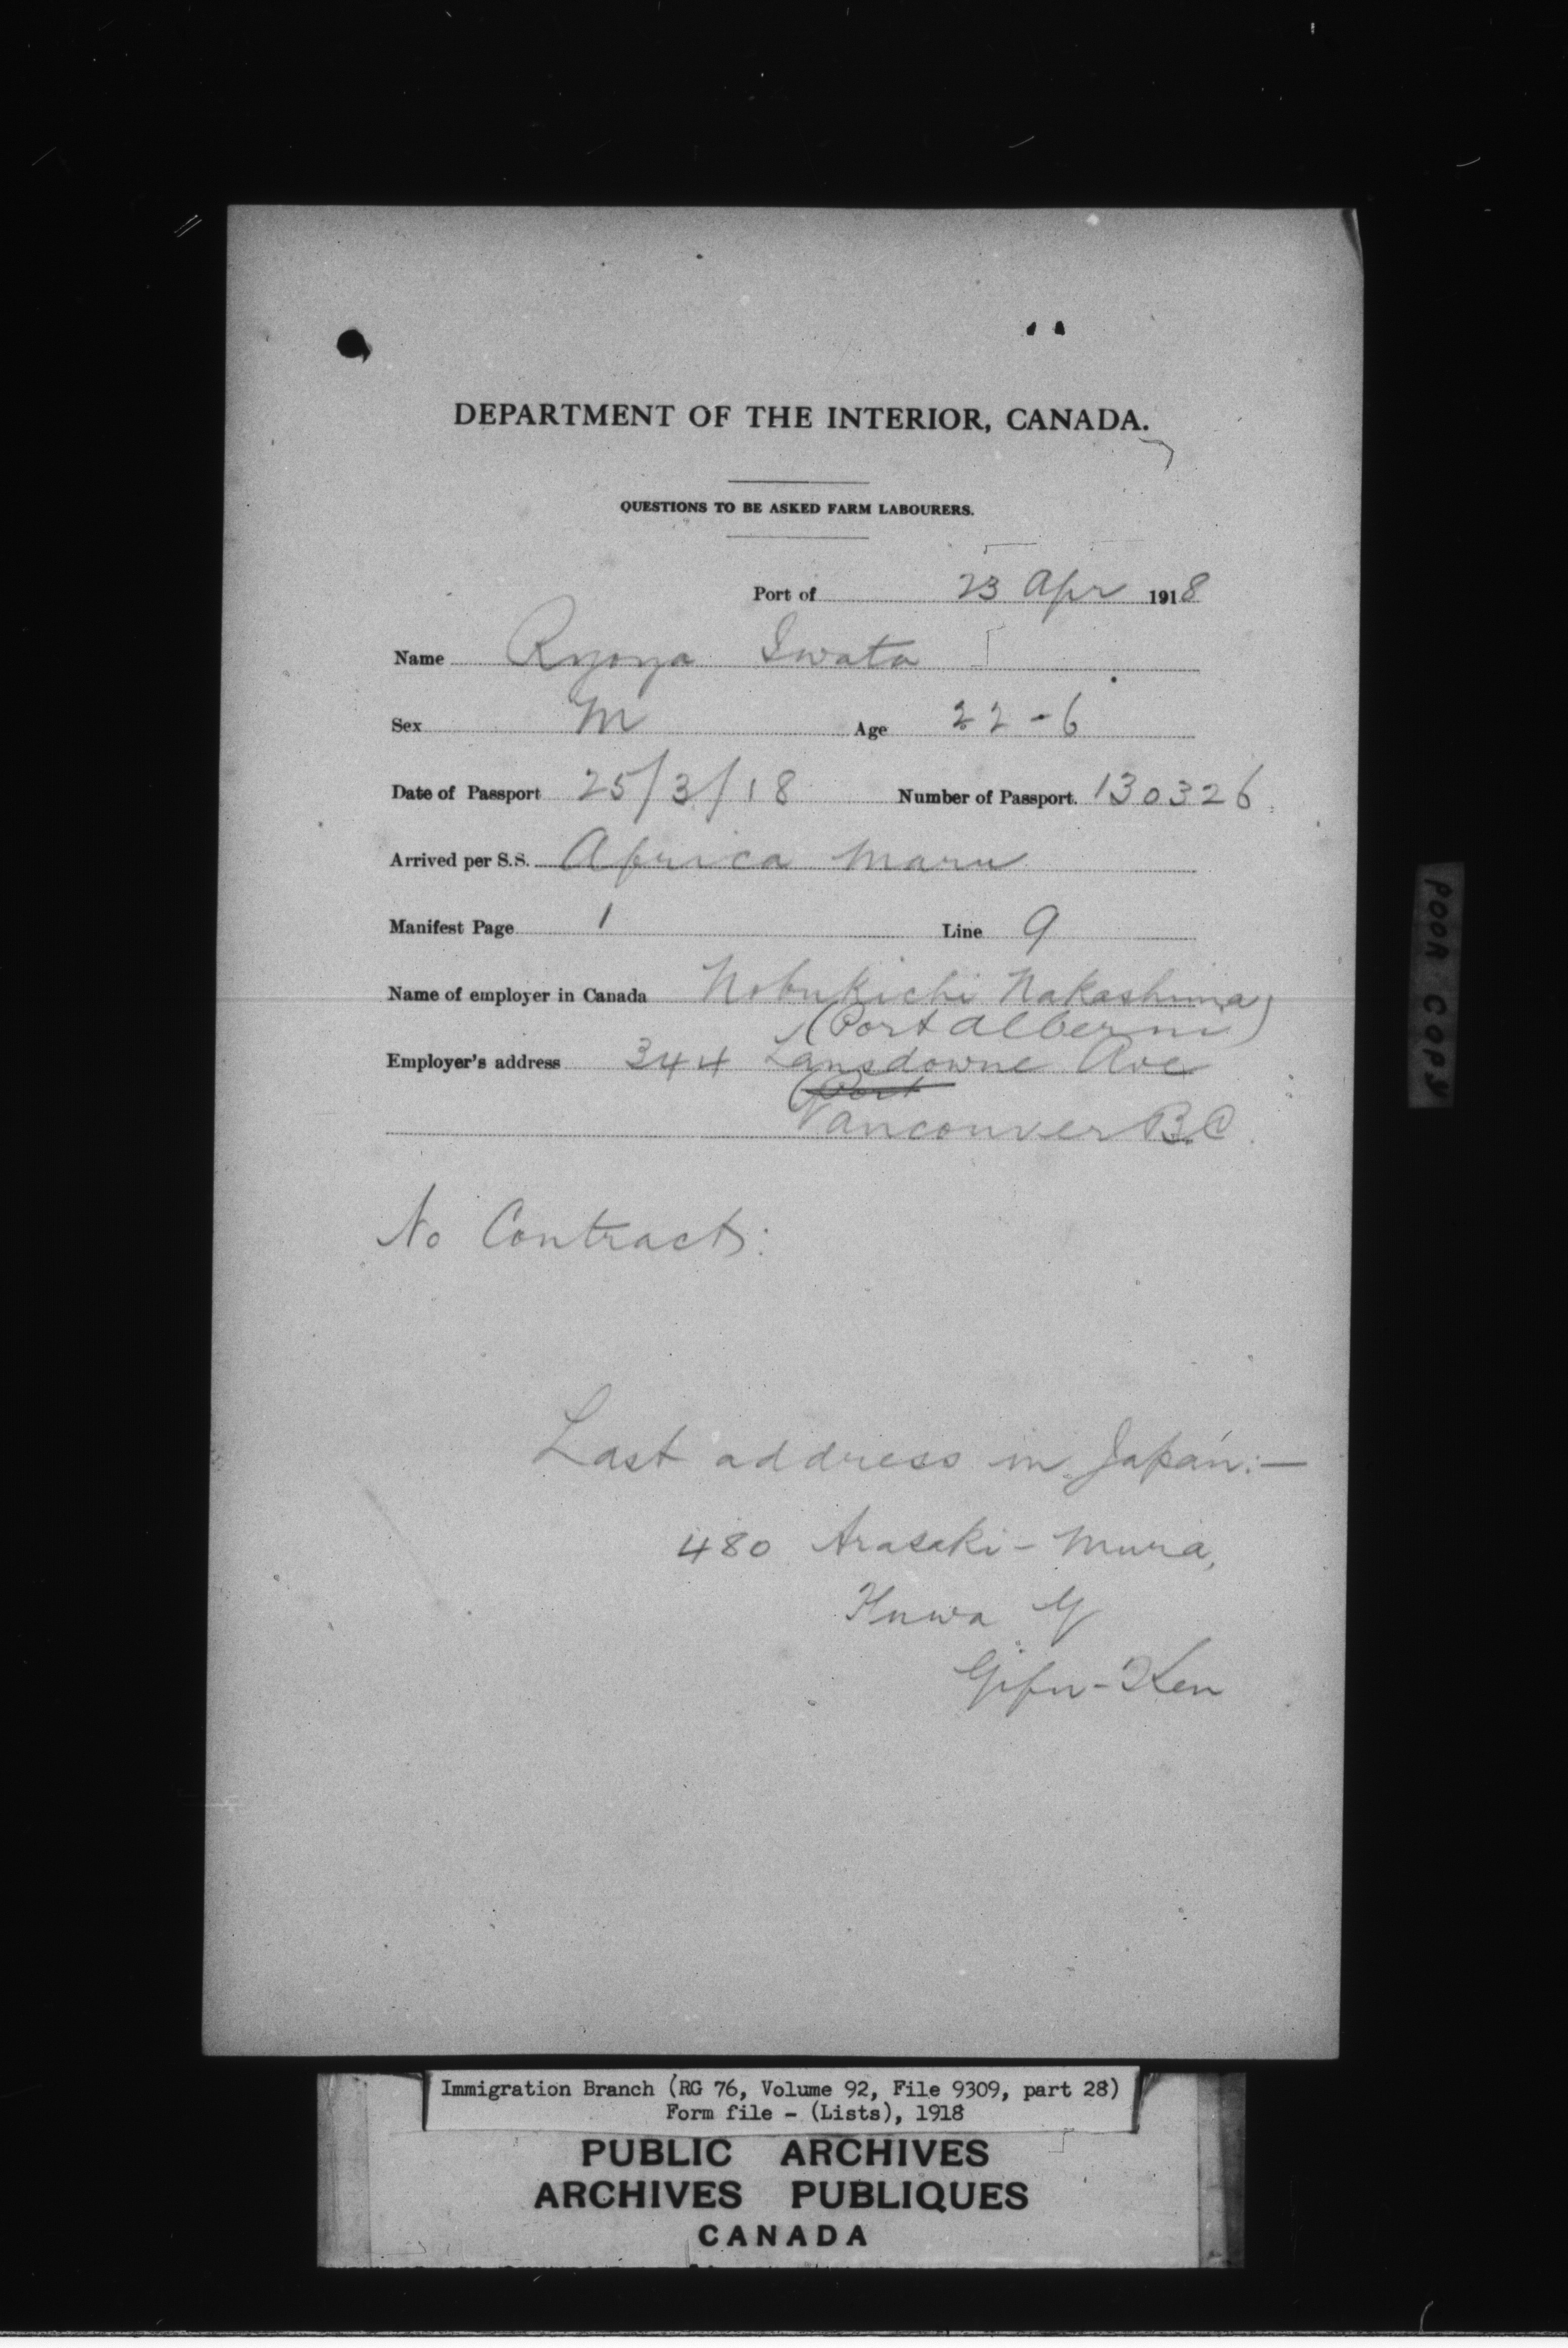 DEPARTMENT OF THE INTERIOR, CANADA.
QUESTIONS TO BE ASKED FARM LABOURERS.
Port of 23 Apr 1918
Name Ryoya Iwata
Sex M Age 22-6
Date of Passport 25/3/18 Number of Passport. 130326
Arrived per S.S. Africa Maru
Manifest Page 1 Line 9
Name of employer in Canada Nobukichi Nakashima
(Port Alberni)
Employer's address 344 Lansdowne Ave
(Port
Vancouver B.C.
No Contract:
Last address in Japan:—
480 Arasaki-Mura,
Fuwa G
Gifu-Ken
POOR COPY
Immigration Branch (RG 76, Volume 92, File 9309, part 28)
Form file - (Lists), 1918
PUBLIC ARCHIVES
ARCHIVES PUBLIQUES
CANADA